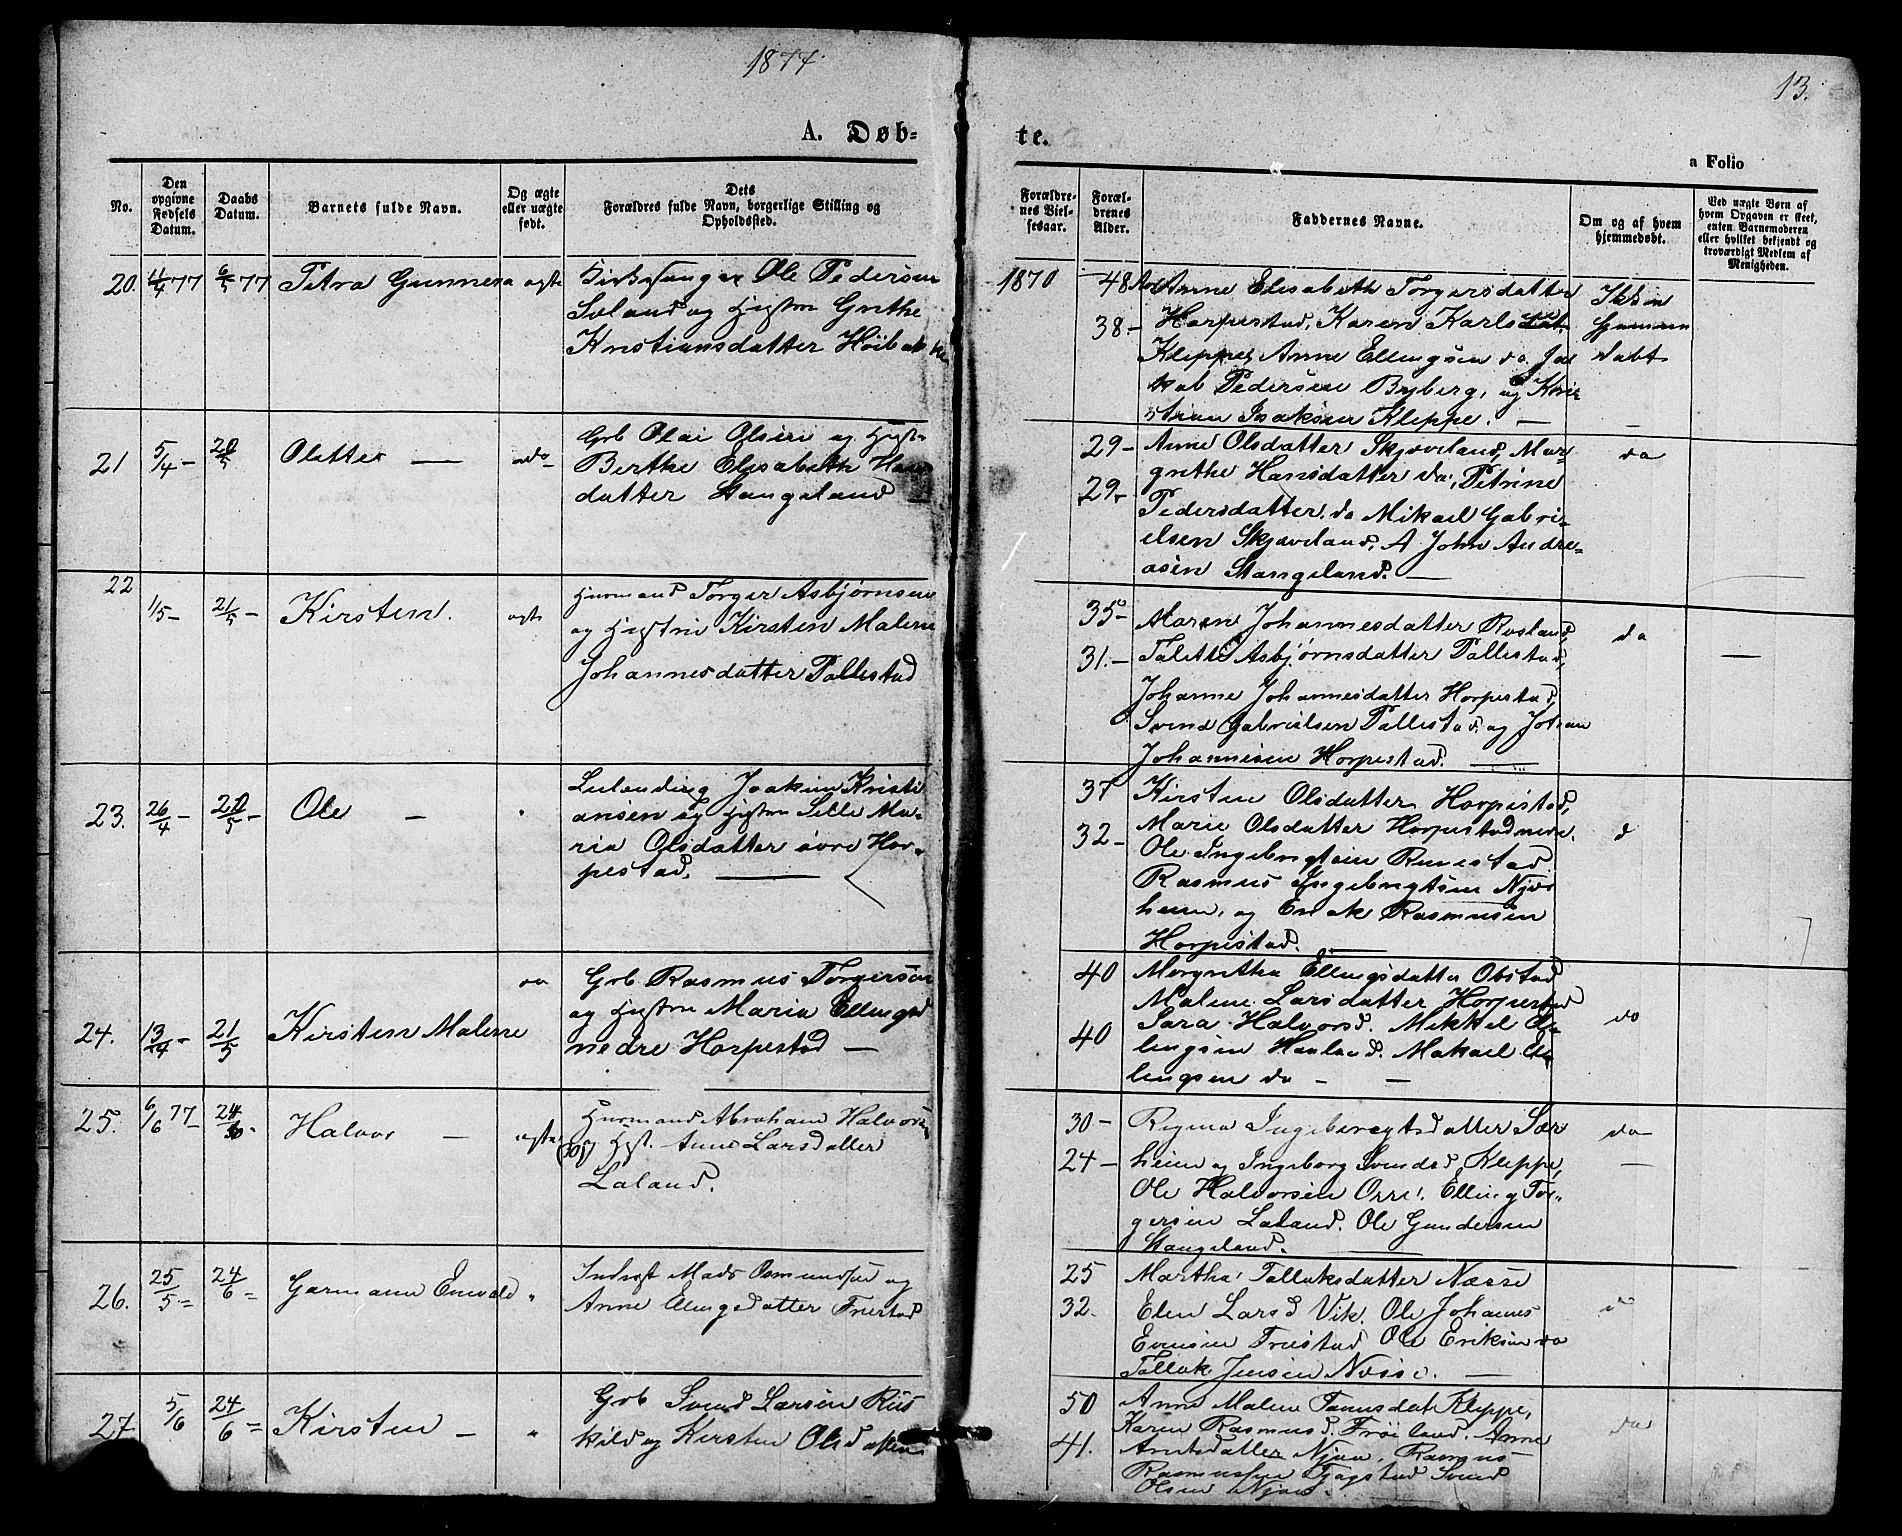 1877.
13.
A. Døb-
te.
a Folio
No.
Den opgivne Fødsels Datum.
Daabs Datum.
Barnets fulde Navn.
Og ægte eller uægte født.
Dets
Forældres fulde Navn, borgerlige Stilling og
Opholdssted.
Forældre-
nes Viel-
sesaar.
Foræl-
drenes
Alder.
Faddernes Navne.
Om og af hvem
hjemmedøbt.
Ved uægte Børn af
hvem Opgaven er skeet,
enten Barnemoderen
eller hvilket bekjendt og
troværdigt Medlem af
Menigheden.
20. 77 6/5 77 Petra Gunnera ægte
Ole Pedersen
Soland og Hustru Grethe
Kristiansdatter Høibakke
1870 48 Anne Elisabeth Torgersdatter
38.- Horpestad, Karen Karlsdat
Kleppe, Anne Ellingsen do. Ja-
kob Pedersen Byberg, og Kri-
stian Isaksen Kleppe. —
Ikke
hjemme
døbt
21 5/4 - 20/5 Olette — do
Grb Olai Olsen og Hust-
Berthe Elisabeth Hans
datter Stangeland
29- Anne Olsdatter Skjæveland, Mar-
29- grethe Hansdatter do, Petrine
Pedersdatter do Mikael Gabri-
elsen Skjæveland, A John Andre-
asen Stangeland. —
do
22 1/5 - 21/5 - Kirsten. ægte
Huusmand Torger Asbjørnsen
og Hustru Kirsten Malene
Johannesdatter Pollestad
35- Maren Johannesdatter Rosland,
31.- Talette Asbjørnsdatter Pollestad,
Johanne Johannesdatter Horpestad,
Svend Gabrielsen Pollestad og Johan
Johannesen Horpestad. —
do
23. 26/4 - 20/5 - Ole —
Leilending Joakim Kristi
ansen og Hustru Sille Ma-
ria Olsdatter øvre Hor-
pestad. —
37 Kirsten Olsdatter Horpestad,
32- Marie Olsdatter Horpestad nedre.
Ole Ingebrigtsen Runestad
Rasmus Ingebrigtsen Njær
heim, og Enok Rasmusen
Horpestad. —
d
24. 13/4 - 21/5 Kirsten Malene
Grb Rasmus Torgersen
og Hustru Maria Ellingsd
nedre Horpestad —
40 Morgretha Ellingsdatter Obstad
40 Malene Larsdatter Horpestad
Sara Halvorsd. Mikkel El-
lingsen Haaland. Mikael El-
lingsen do — —
do
25. 6/6 77 24/6 - Halvor — ægte
Huusmand Abraham Halvorsen
og Hust. Anne Larsdatter
Laland.
30- Regina Ingebregtsdatter Sær
24- heim og Ingeborg Svendsd Kleppe,
Ole Halvorsen Orre. Elling Tor-
gersen Laland. Ole Gundersen
Stangeland. —
do
26. 25/5 - 24/6 - Garmann Enevald "
Indrest Mads Osmundsen og
Anne Elingsdatter Friestad
25 Martha Tolluksdatter Næsse
32. Elen Larsd Vik. Ole Johannes
Evensen Friestad Ole Eriksen do
Tolluk Jensen Næsse. —
27 5/6 24/6 = Kirsten — "
Grb Svend Larsen Rus
kild og Kirsten Olsdatter
50 Anne Malene Tønnesdat Kleppe,
41. Karen Rasmusd. Frøiland. Anne
Arntsdatter Njaa, Rasmus
Rasmussen Tjøgstad Svend
Olsen Njaa.
do